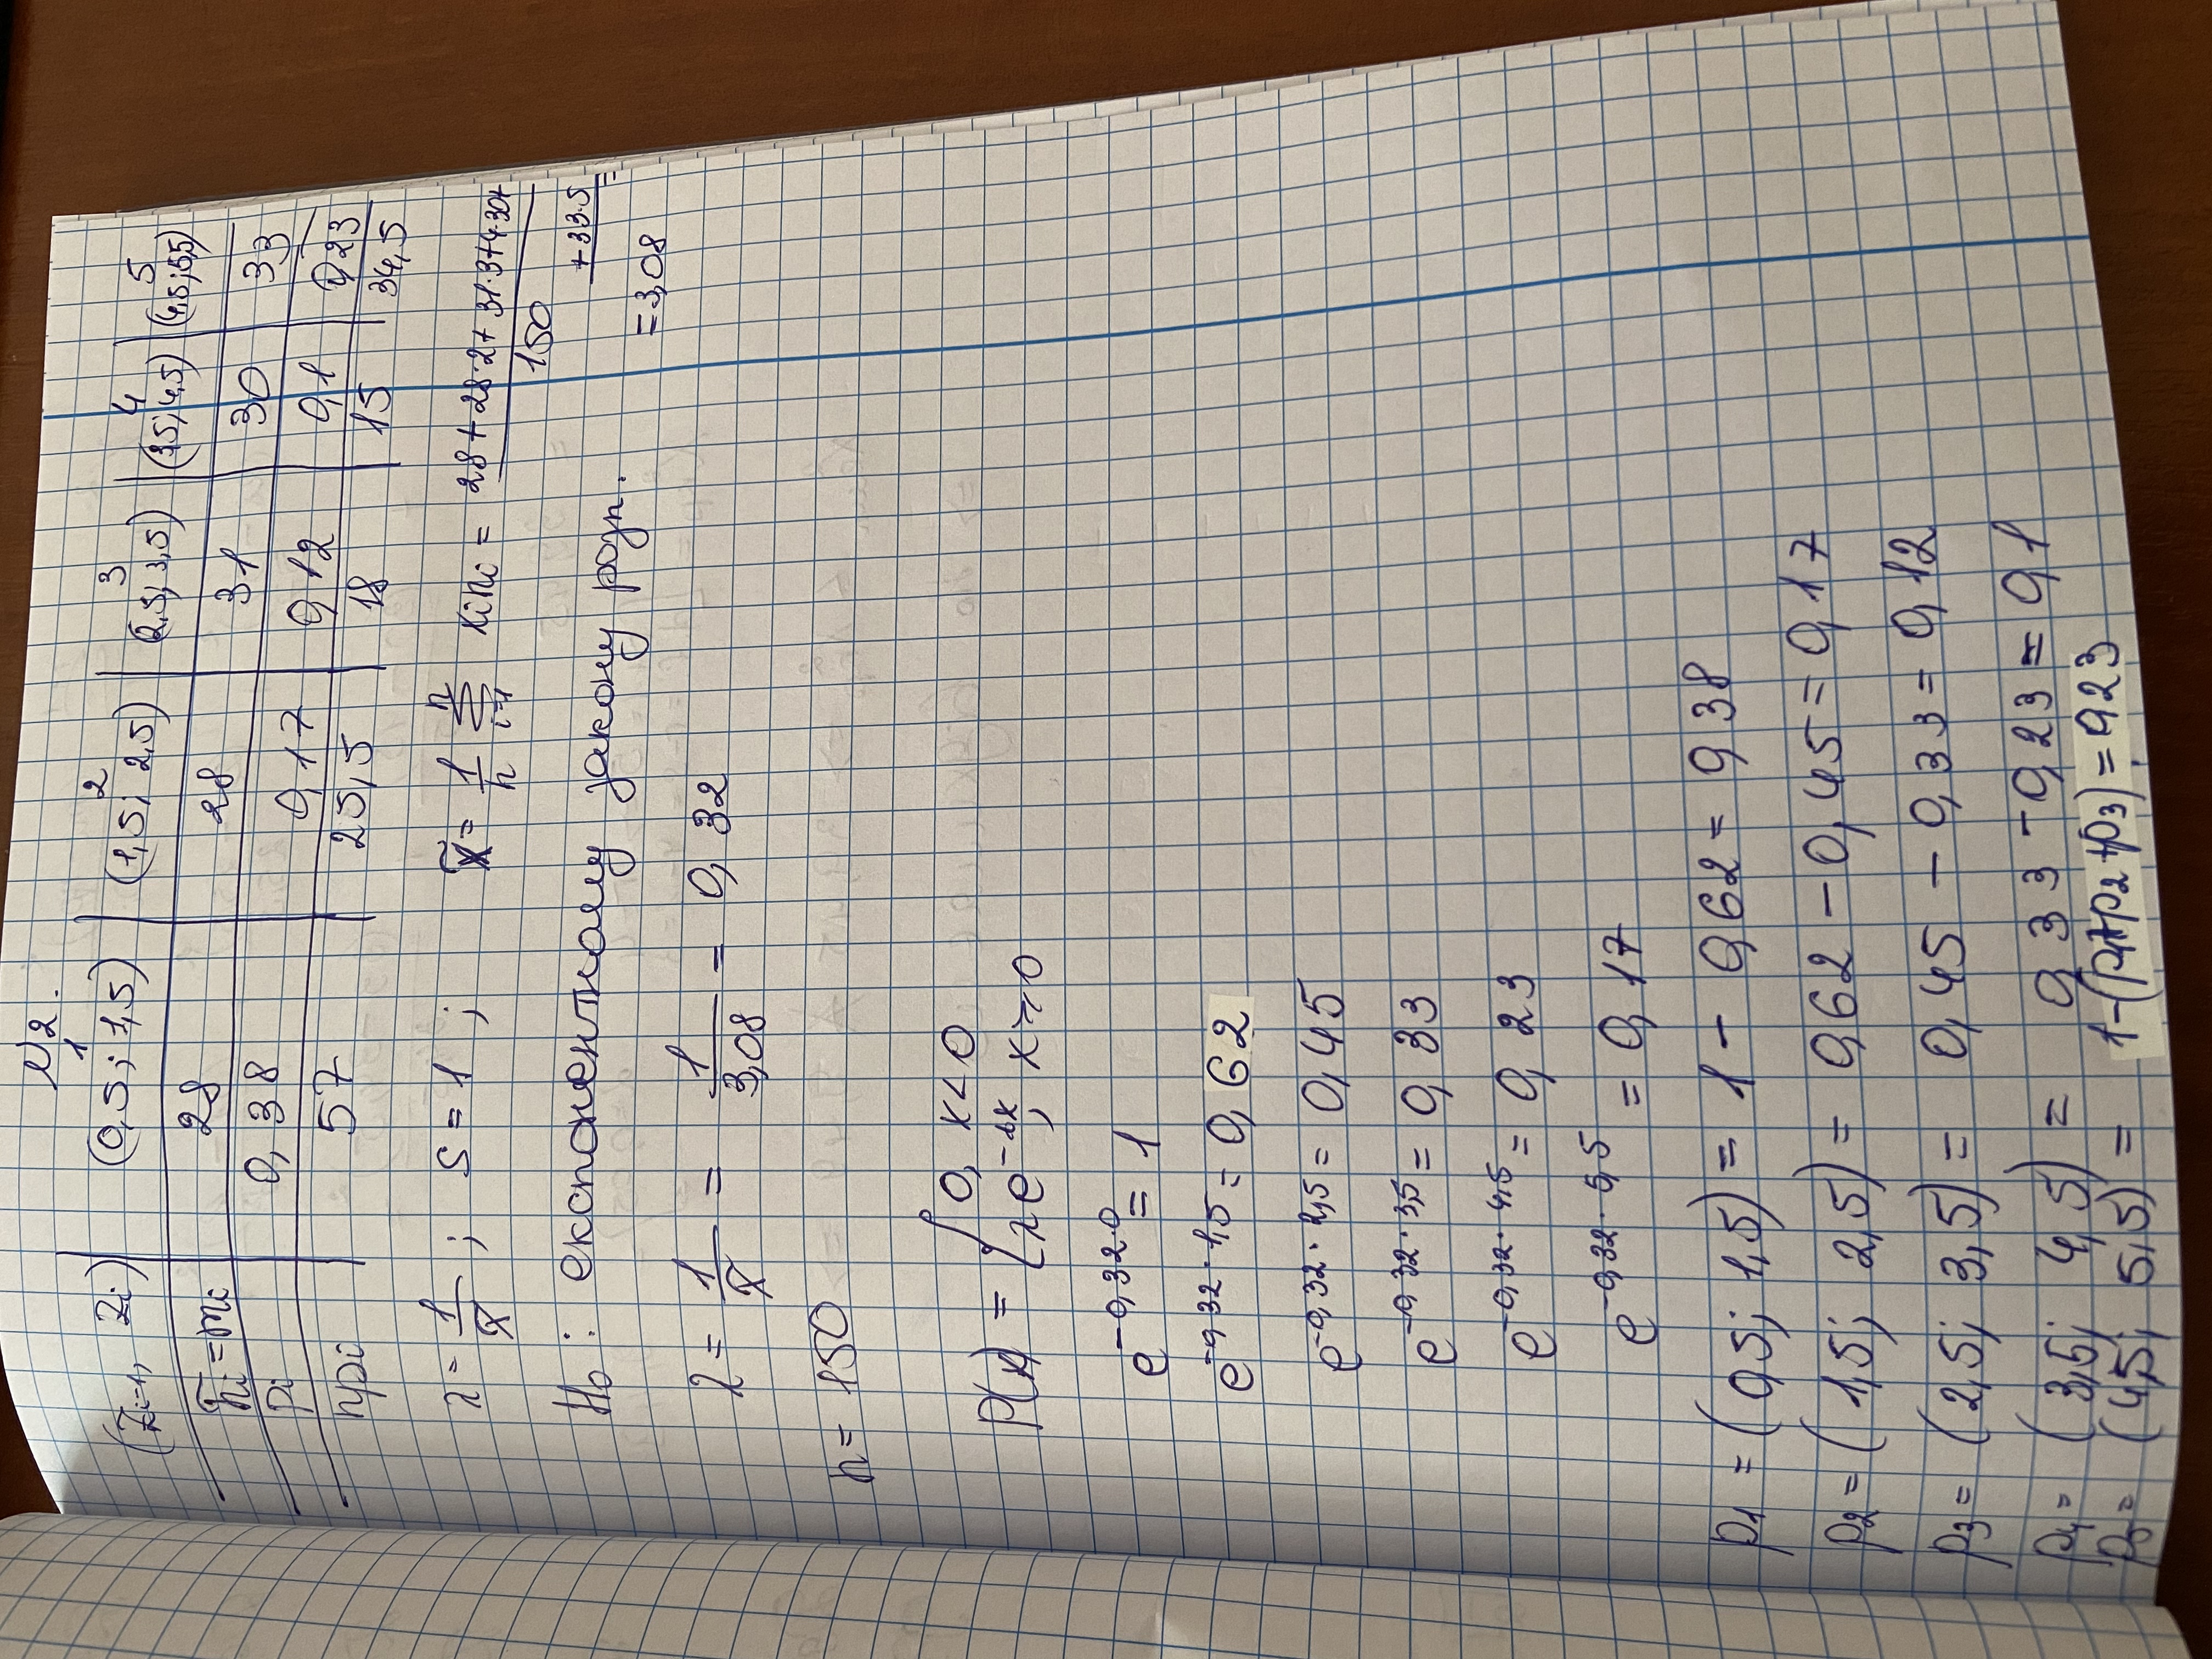 №2.
1 2 3 4 5
(Zi-1, Zi) (0,5; 1,5) (1,5; 2,5) (2,5; 3,5) (3,5; 4,5) (4,5; 5,5)
n̄i = mi 28 28 31 30 33
pi 0,38 0,17 0,12 0,1 0,23
npi 57 25,5 18 15 34,5
λ = 1/x̄ ; S = 1 ; x̄ = 1/n Σ i=1 n xini = (28 + 28·2 + 31·3 + 4·30 +
+ 33·5)/150 =
= 3,08
H₀: експонентному закону розп.
λ = 1/x̄ = 1/3,08 = 0,32
n = 150
P(x) = { 0, x < 0
λe^-λx; x ≥ 0
e^-0,32·0 = 1
e^-0,32·1,5 = 0,62
e^-0,32·2,5 = 0,45
e^-0,32·3,5 = 0,33
e^-0,32·4,5 = 0,23
e^-0,32·5,5 = 0,17
p1 = (0,5; 1,5) = 1 - 0,62 = 0,38
p2 = (1,5; 2,5) = 0,62 - 0,45 = 0,17
p3 = (2,5; 3,5) = 0,45 - 0,33 = 0,12
p4 = (3,5; 4,5) = 0,33 - 0,23 = 0,1
p5 = (4,5; 5,5) = 1-(p1+p2+p3) = 0,23